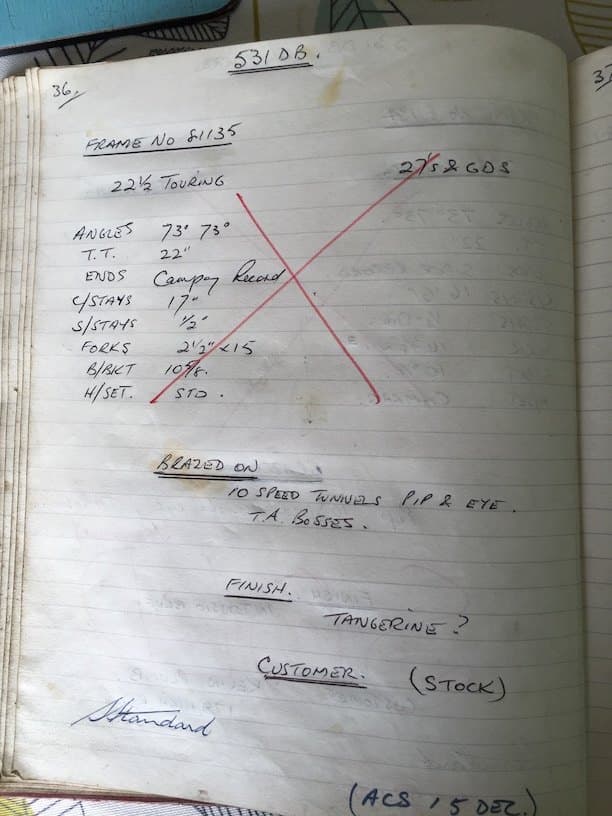 531 DB.
36,
37
FRAME NO 81135
27"s & GDS
22½ TOURING
ANGLES 73° 73°
T.T. 22"
ENDS Campag Record
C/STAYS 17"
S/STAYS ½"
FORKS 2½" x 15
B/BKT 10⅝.
H/SET. STD.
BRAZED ON
10 SPEED TUNNELS PIP & EYE.
T.A. BOSSES.
FINISH.
TANGERINE?
CUSTOMER. (STOCK)
Standard
(ACS 15 DEC.)